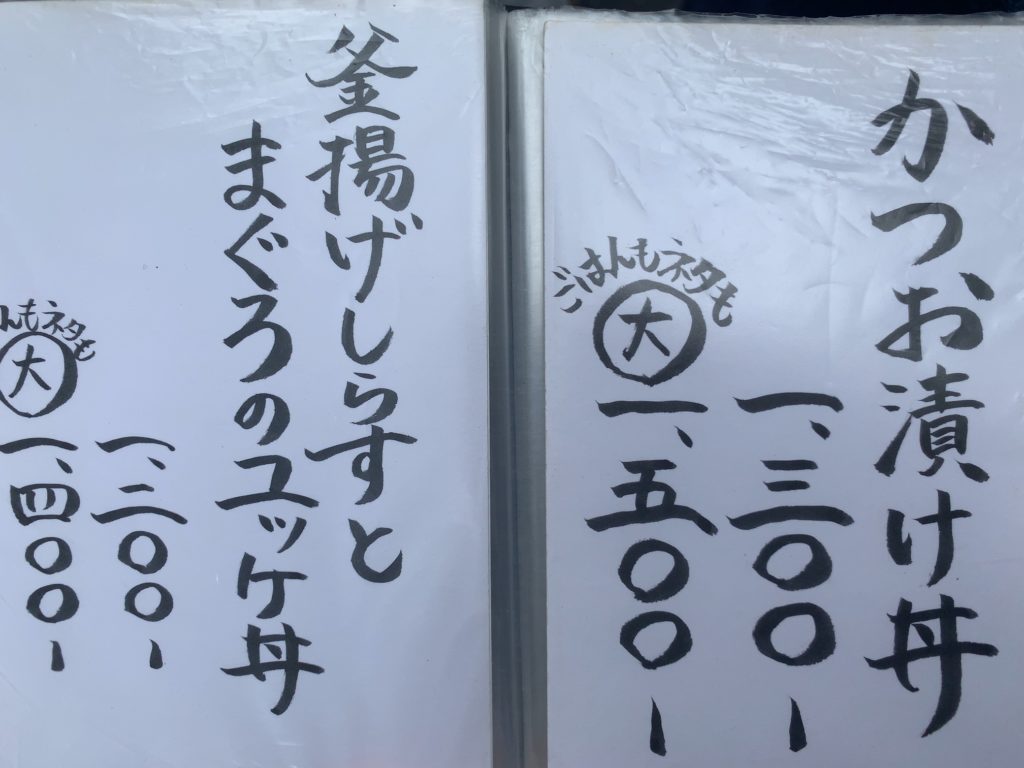 かつお漬け丼
一、三〇〇ー
ごはんもネタも
大
一、五〇〇ー
釜揚げしらすと
まぐろのユッケ丼
一、二〇〇ー
んもネタも
大
一、四〇〇ー